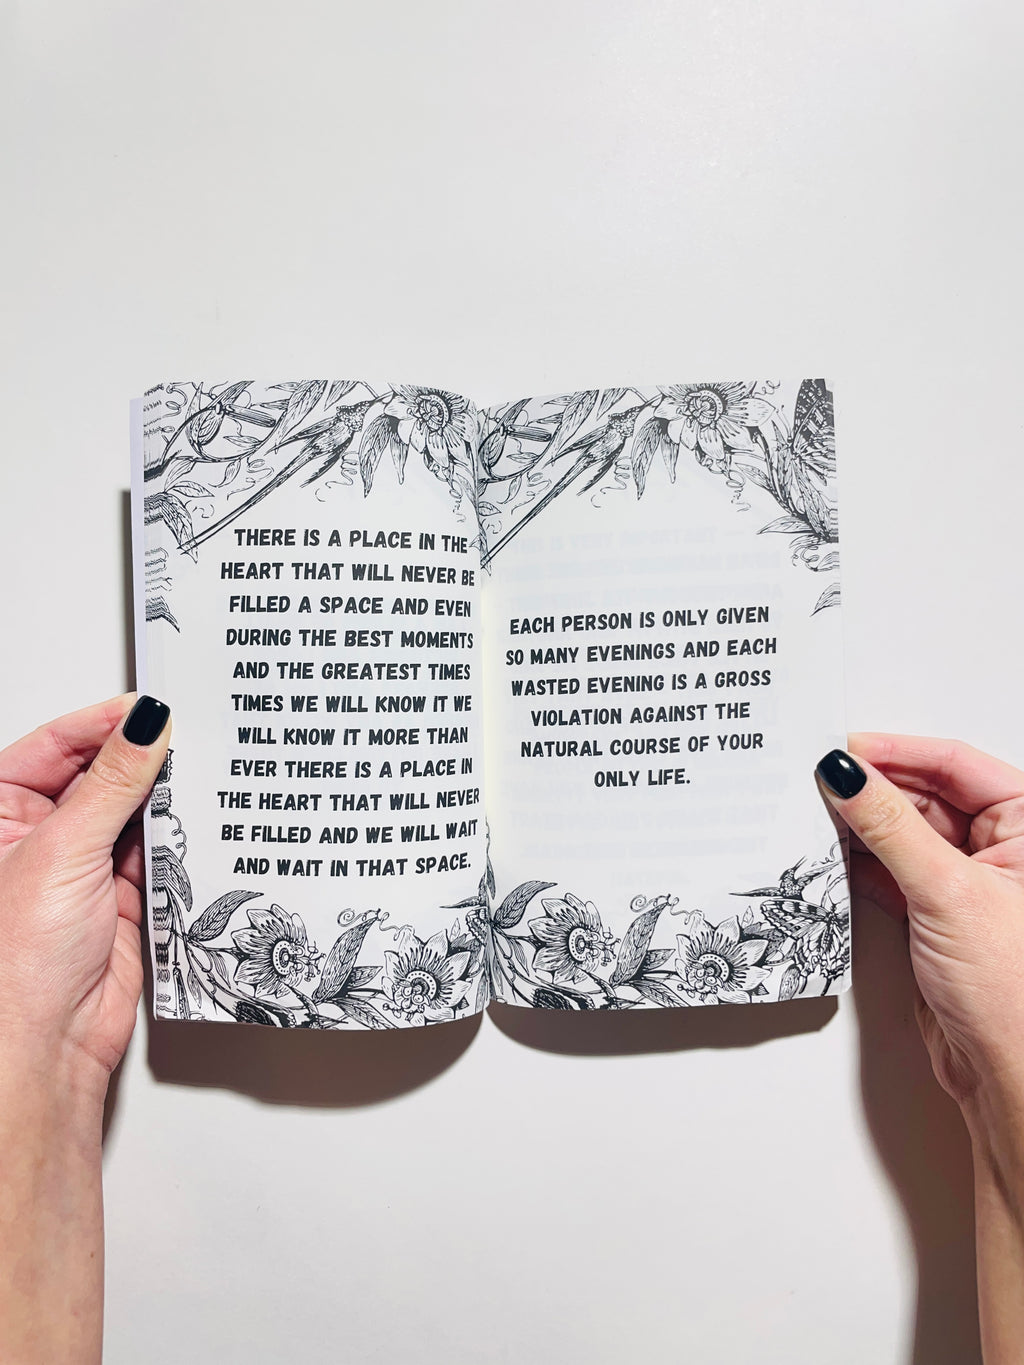 THERE IS A PLACE IN THE
HEART THAT WILL NEVER BE
FILLED A SPACE AND EVEN
DURING THE BEST MOMENTS
AND THE GREATEST TIMES
TIMES WE WILL KNOW IT WE
WILL KNOW IT MORE THAN
EVER THERE IS A PLACE IN
THE HEART THAT WILL NEVER
BE FILLED AND WE WILL WAIT
AND WAIT IN THAT SPACE.
EACH PERSON IS ONLY GIVEN
SO MANY EVENINGS AND EACH
WASTED EVENING IS A GROSS
VIOLATION AGAINST THE
NATURAL COURSE OF YOUR
ONLY LIFE.